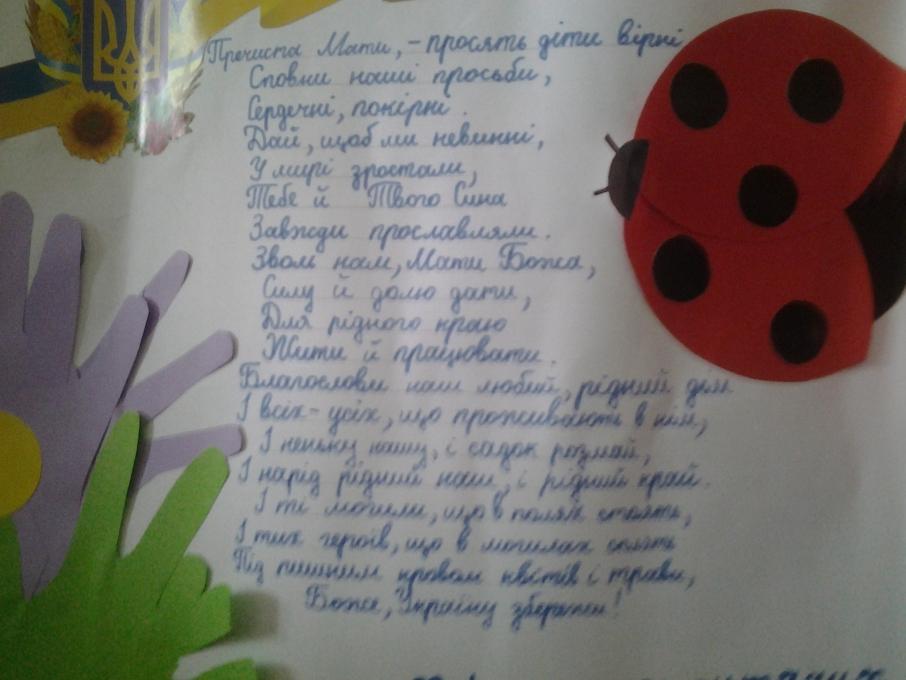 Пречиста Мати, - просять діти вірні
Сповни наші просьби,
Сердечні, покірні.
Дай, щоб ми невинні,
У мирі зростали,
Тебе й Твого Сина
Завжди прославляли.
Зволь нам, Мати Божа,
Силу й долю дати,
Для рідного краю
Жити й працювати.
Благослови наш любий, рідний дім
І всіх-усіх, що проживають в нім,
І неньку нашу, і садок розмай,
І нарід рідний наш, і рідний край.
І ті могили, що в полях стоять,
І тих героїв, що в могилах сплять
Під пишним кровом квітів і трави,
Боже, Україну збережи!